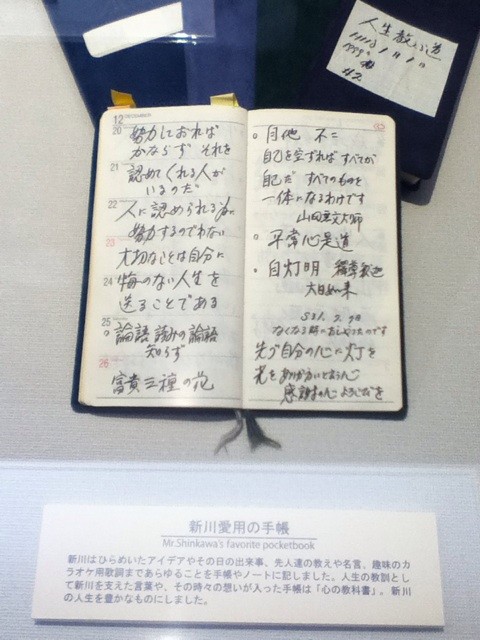 人生教
12 DECEMBER
20
努力しておれば
かならず それを
21
認めてくれる人が
いるのだ
22
人に認められる為に
23
努力するのでわない
大切なことは自分に
24
悔のない人生を
送ることである
25
○ 論語 読みの論語
知らず
26
富貴三種の花
○ 自他 不二
自己を空ずれば すべてが
自己だ すべてのものと
一体になるわけです
山田 大師
○ 平常心是道
○ 自灯明
大日如来
なくなる時におしゃったのです
先づ自分の心に灯を
光を
感謝の心 よろこびを
新川愛用の手帳
Mr.Shinkawa's favorite pocketbook
新川はひらめいたアイデアやその日の出来事、先人達の教えや名言、趣味のカ
ラオケ用歌詞まであらゆることを手帳やノートに記しました。人生の教訓とし
て新川を支えた言葉や、その時々の想いが入った手帳は「心の教科書」。新川
の人生を豊かなものにしました。